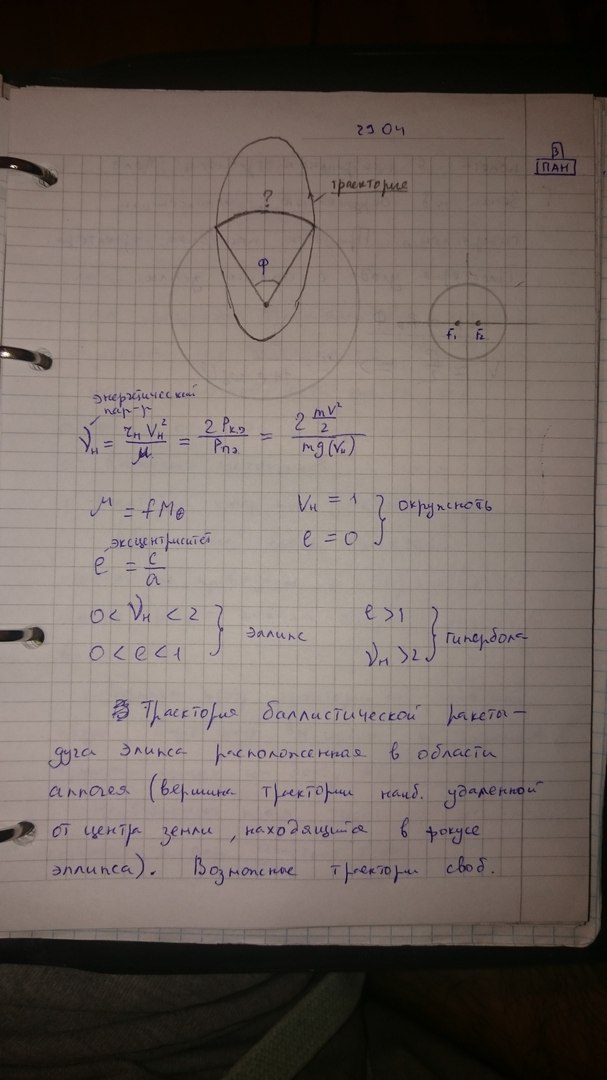 29 04
В
ПАН
?
траектория
φ
F₁ F₂
энергетический
пар-р
νн = rн Vн² / μ = 2 Pк.э / Pпэ = 2 mV²/2 / mg(rн)
μ = fM⊕
νн = 1
e = 0 } окружность
эксцентриситет
e = c/a
0 < νн < 2
0 < e < 1 } эллипс
e > 1
νн > 2 } гипербола
Траектория баллистической ракеты –
дуга элипса расположенная в области
аппогея (вершина траектории наиб. удаленной
от центра земли, находящийся в фокусе
эллипса). Возможные траектории своб.